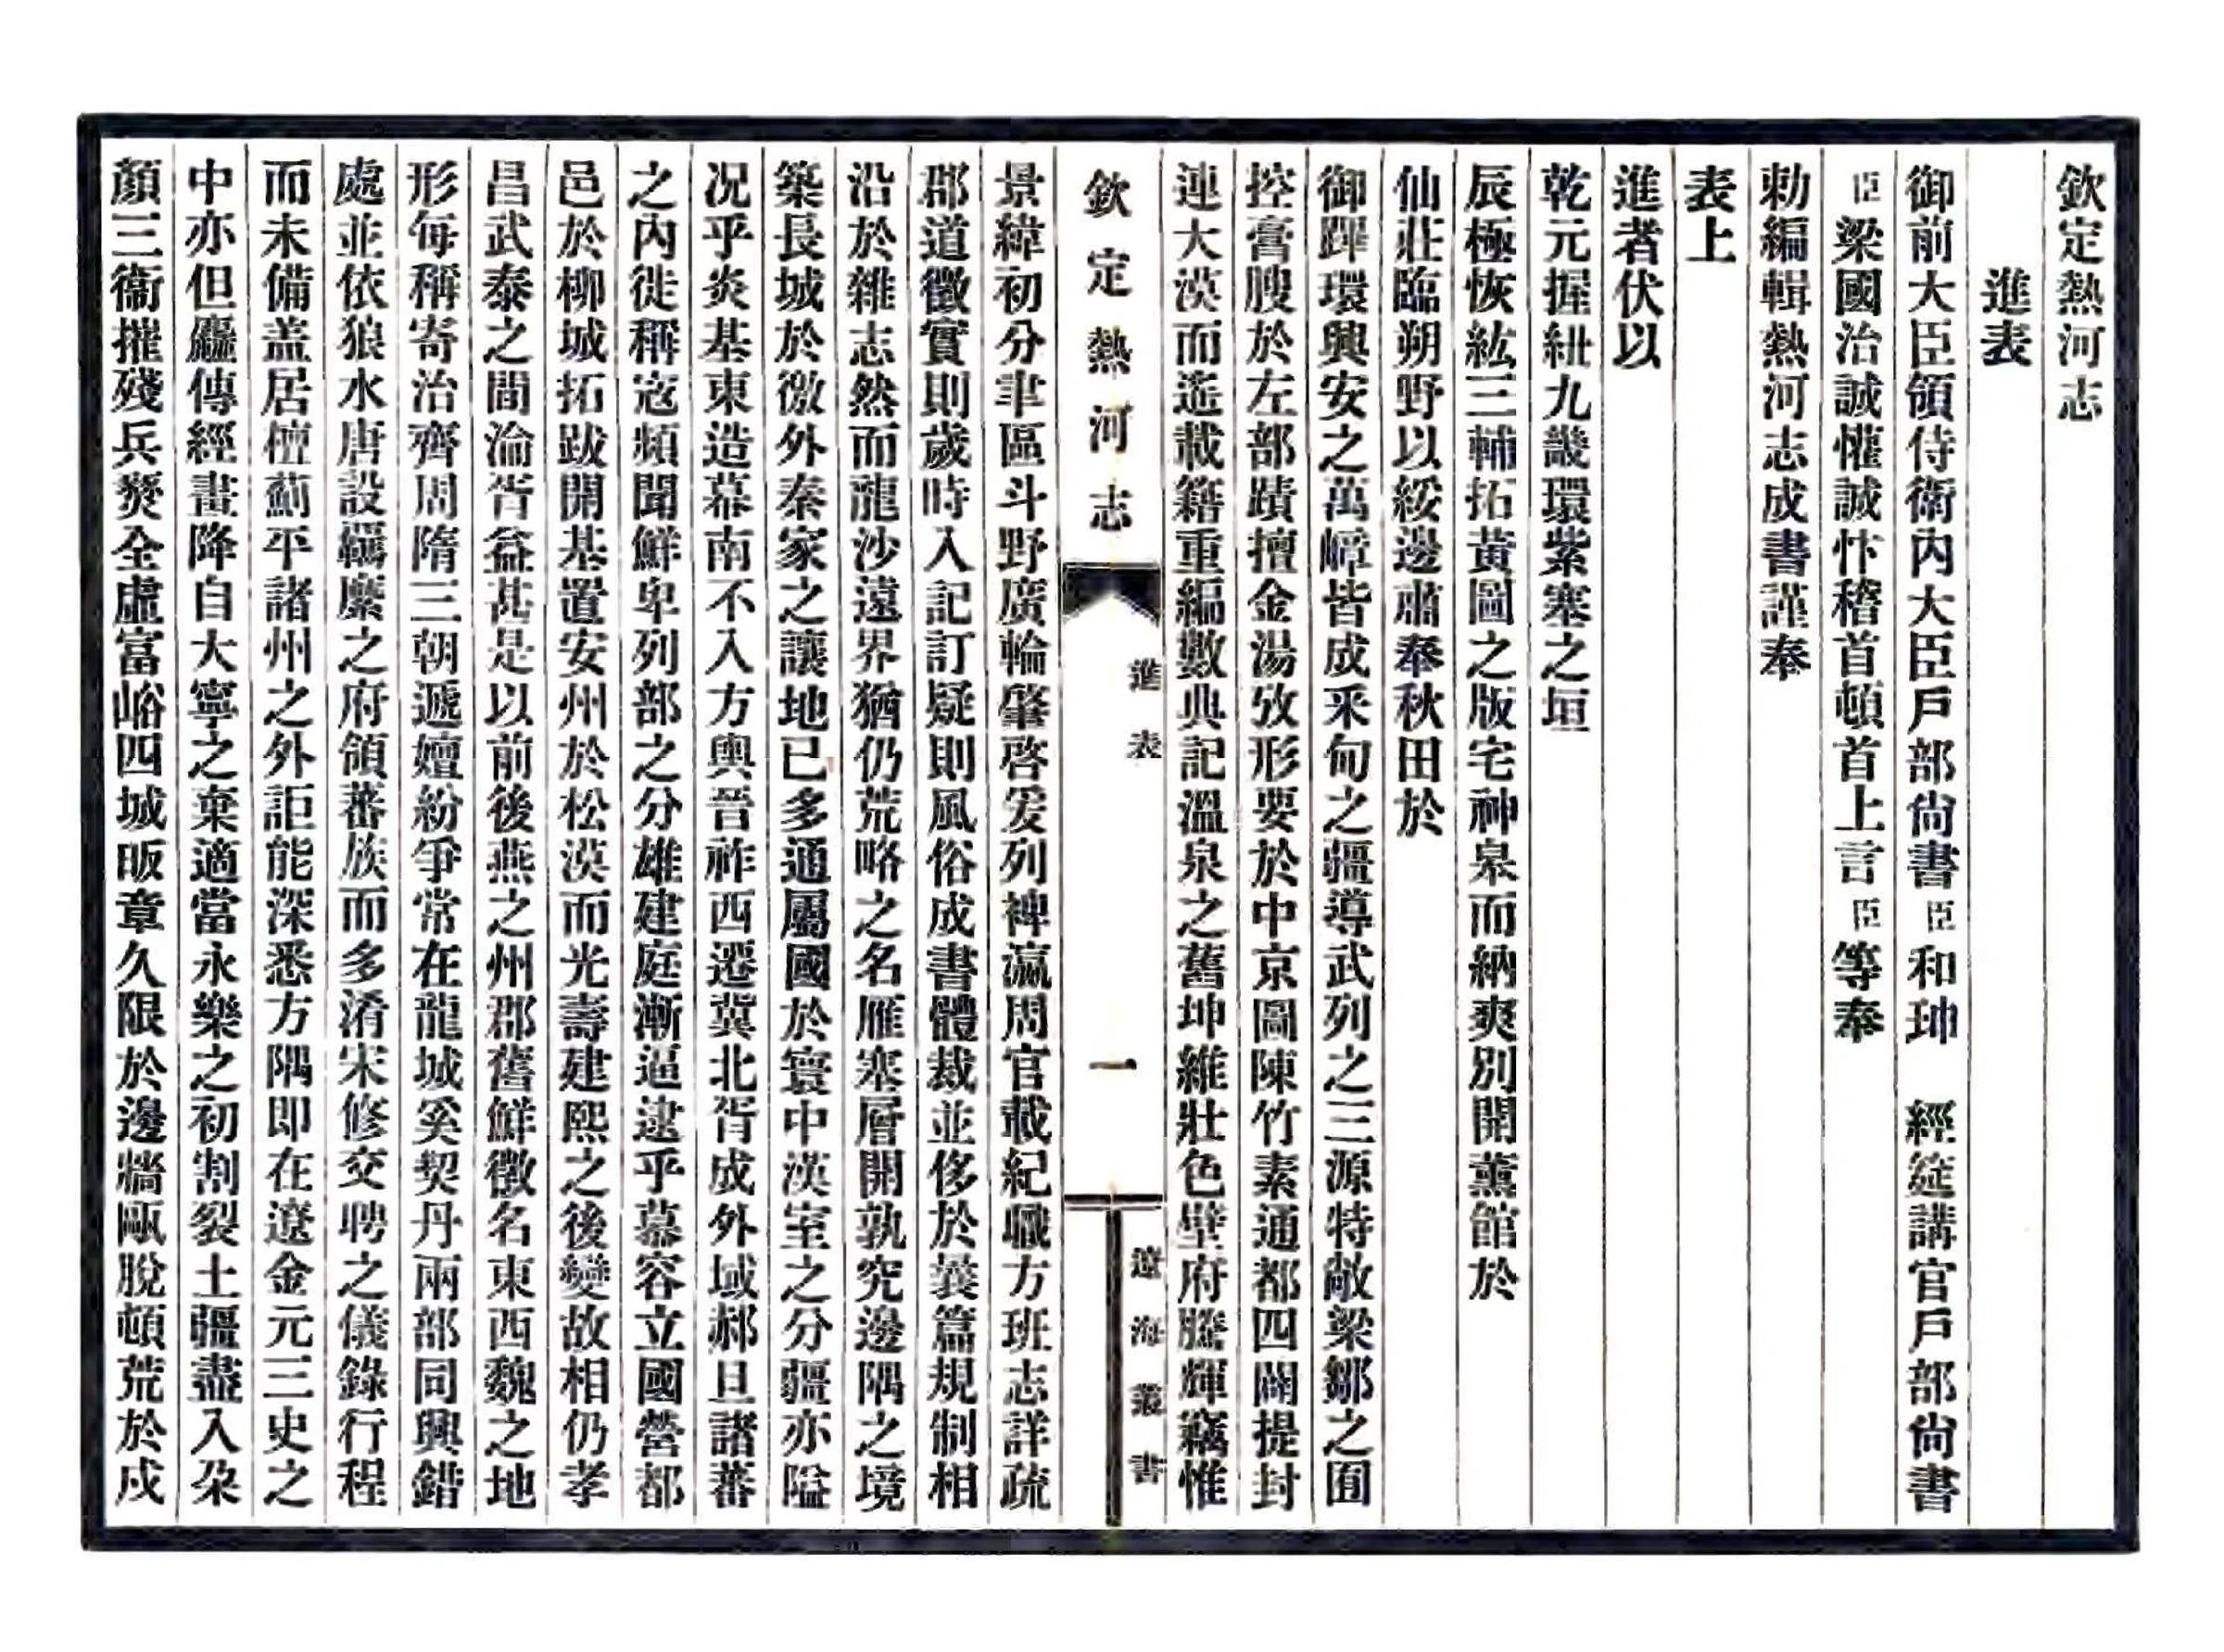 欽定熱河志
進表
御前大臣領侍衛內大臣戶部尚書臣和珅　經筵講官戶部尚書
臣梁國治誠懽誠忭稽首頓首上言臣等奉
勅編輯熱河志成書謹奉
表上
進者伏以
乾元握紐九畿環紫塞之垣
辰極恢紘三輔拓黃圖之版宅神皋而納爽別開薰館於
仙莊臨朔野以綏邊肅奉秋田於
御蹕環興安之萬嶂皆成釆甸之疆導武列之三源特敞梁鄒之囿
控膏腴於左部蹟擅金湯攷形要於中京圖陳竹素通都四闢提封
連大漠而遙載籍重編數典記溫泉之舊坤維壯色壁府騰輝竊惟
欽定熱河志
進表
一
遼海叢書
景緯初分聿區斗野廣輪肇啓爰列裨瀛周官載紀職方班志詳疏
郡道徵實則歲時入記訂疑則風俗成書體裁並侈於曩篇規制相
沿於雜志然而龍沙遠界猶仍荒略之名雁塞層開孰究邊隅之境
築長城於徼外秦家之讓地已多通屬國於寰中漢室之分疆亦隘
况乎炎基東造幕南不入方輿晉祚西遷冀北胥成外域郝旦諸蕃
之內徙稱寇頻聞鮮卑列部之分雄建庭漸逼逮乎慕容立國營都
邑於柳城拓跋開基置安州於松漠而光壽建熙之後變故相仍孝
昌武泰之間淪胥益甚是以前後燕之州郡舊鮮徵名東西魏之地
形每稱寄治齊周隋三朝遞嬗紛爭常在龍城奚契丹兩部同興錯
處並依狼水唐設羈縻之府領蕃族而多淆宋修交聘之儀錄行程
而未備盖居檀薊平諸州之外詎能深悉方隅即在遼金元三史之
中亦但麤傳經畫降自大寧之棄適當永樂之初割裂土疆盡入朶
顏三衞摧殘兵燹全虛富峪四城昄章久限於邊牆甌脫頓荒於戍